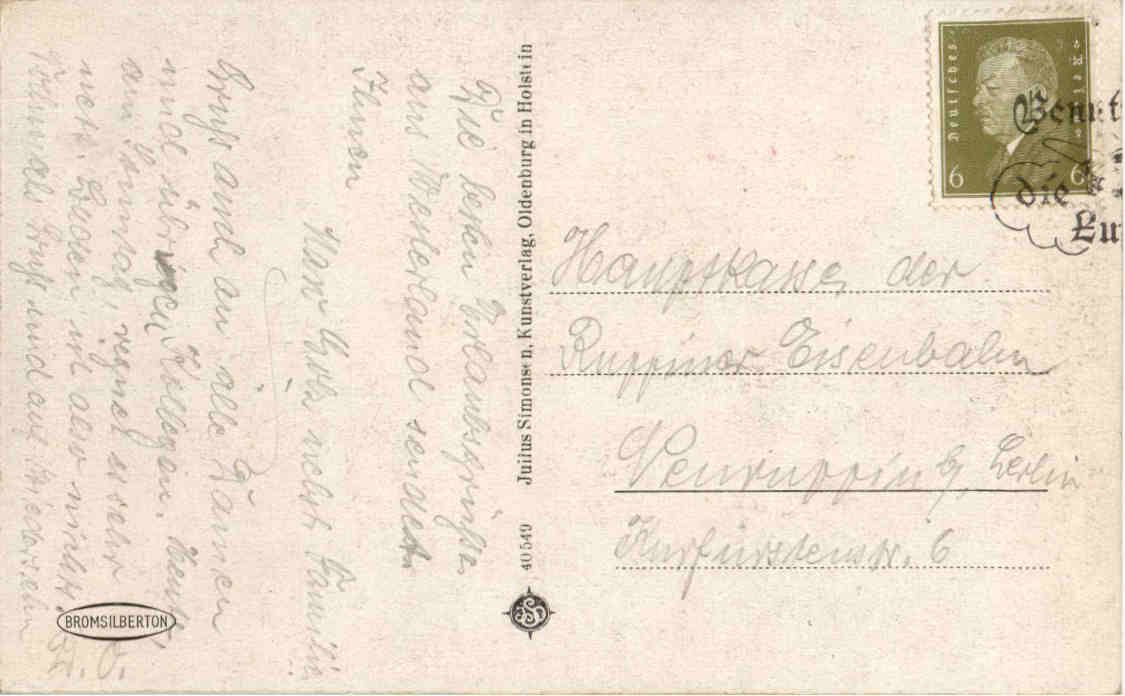 Die besten Urlaubsgrüße
aus Westerland sendet
Ihnen
Hans nebst Familie
Gruß auch an alle Damen
und übrigen Kollegen. Heute
am Sonntag, regnet es sehr
nett. Baden ist aber nicht
Nochmals Gruß und auf Wiedersehn
BROMSILBERTON
40549
Julius Simonsen, Kunstverlag, Oldenburg in Holstein
Deutsches Reich
6 6
Benut
die
Lu
Hauptkasse der
Ruppiner Eisenbahn
Neuruppin b/ Berlin
Kurfürstenstr. 6